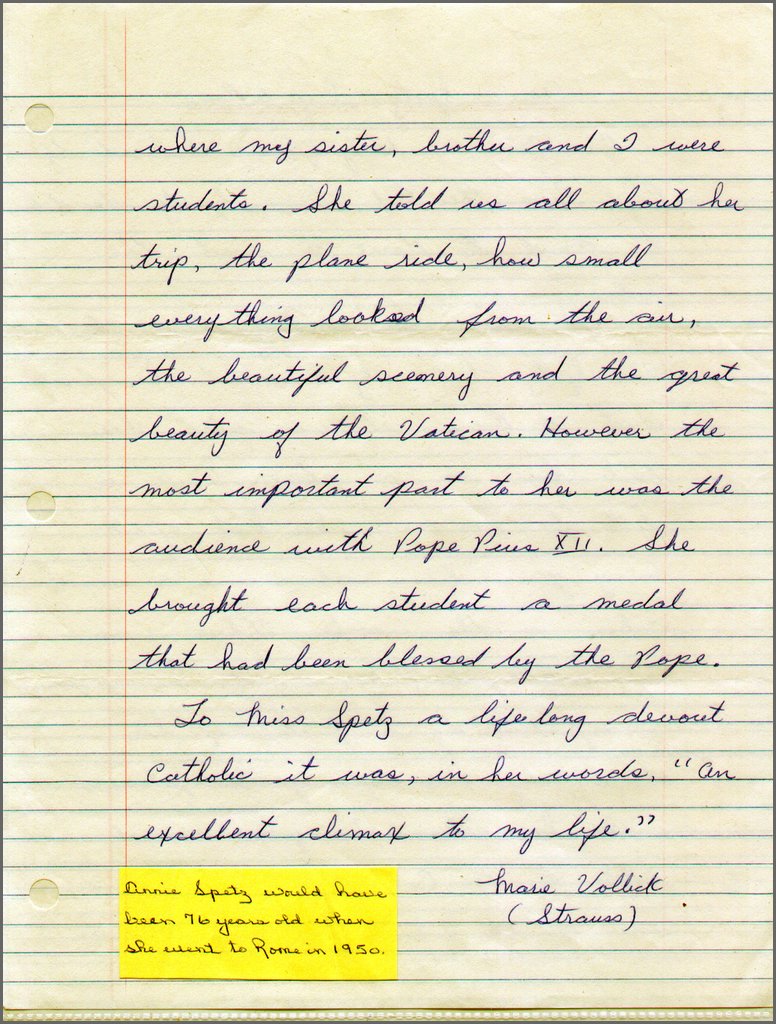 where my sister, brother and I were
students. She told us all about her
trip, the plane ride, how small
everything looked from the air,
the beautiful scenery and the great
beauty of the Vatican. However the
most important part to her was the
audience with Pope Pius XII. She
brought each student a medal
that had been blessed by the Pope.
To Miss Spetz a life long devout
Catholic it was, in her words, "an
excellent climax to my life."
Marie Vollick
(Strauss)
Annie Spetz would have
been 76 years old when
she went to Rome in 1950.